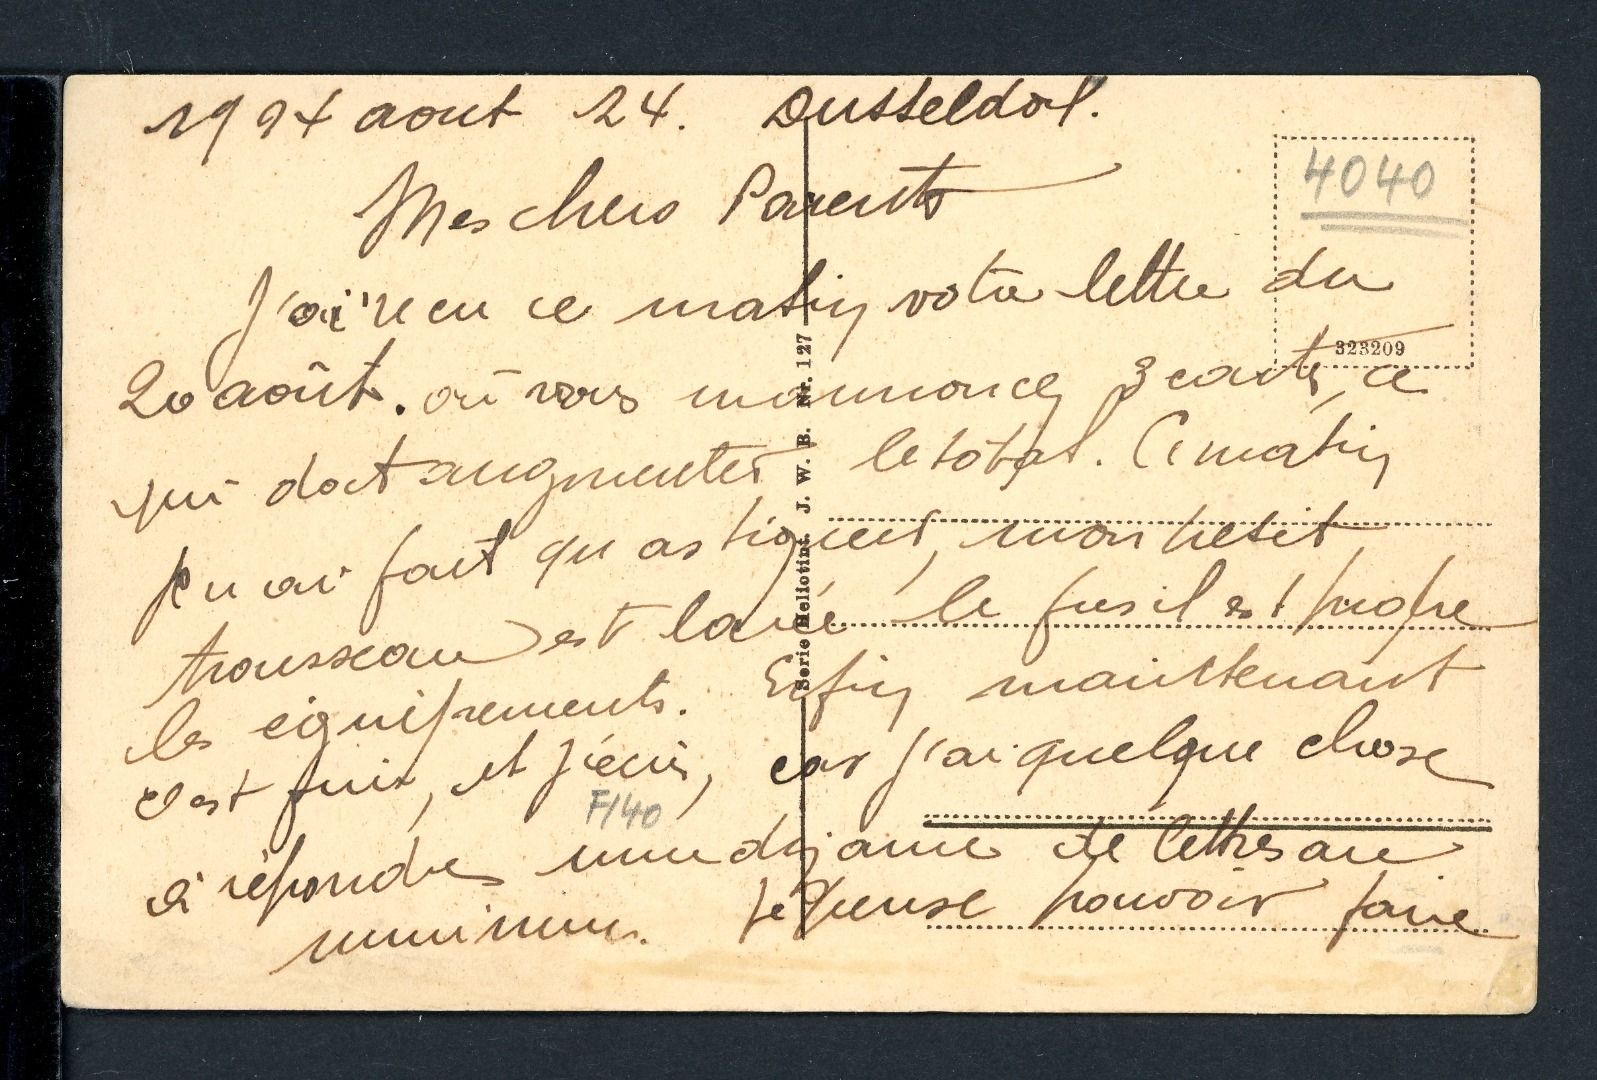 1924 aout 24. Dusseldorf.
4040
Mes chers Parents
J'ai recu ce matin votre lettre du
323209
20 août. où vous m'annoncez 3 cartes, ce
qui doit augmenter le total. Ce matin
je n'ai fait qu'astiquer, mon petit
trousseau est lavé le fusil est propre
les equipements. Enfin maintenant
c'est fini, et j'écris, car j'ai quelque chose
F/40
à répondre une dizaine de lettres au
minimum. Je pense pouvoir faire
Serie Heliotint. J. W. B. Nr. 127